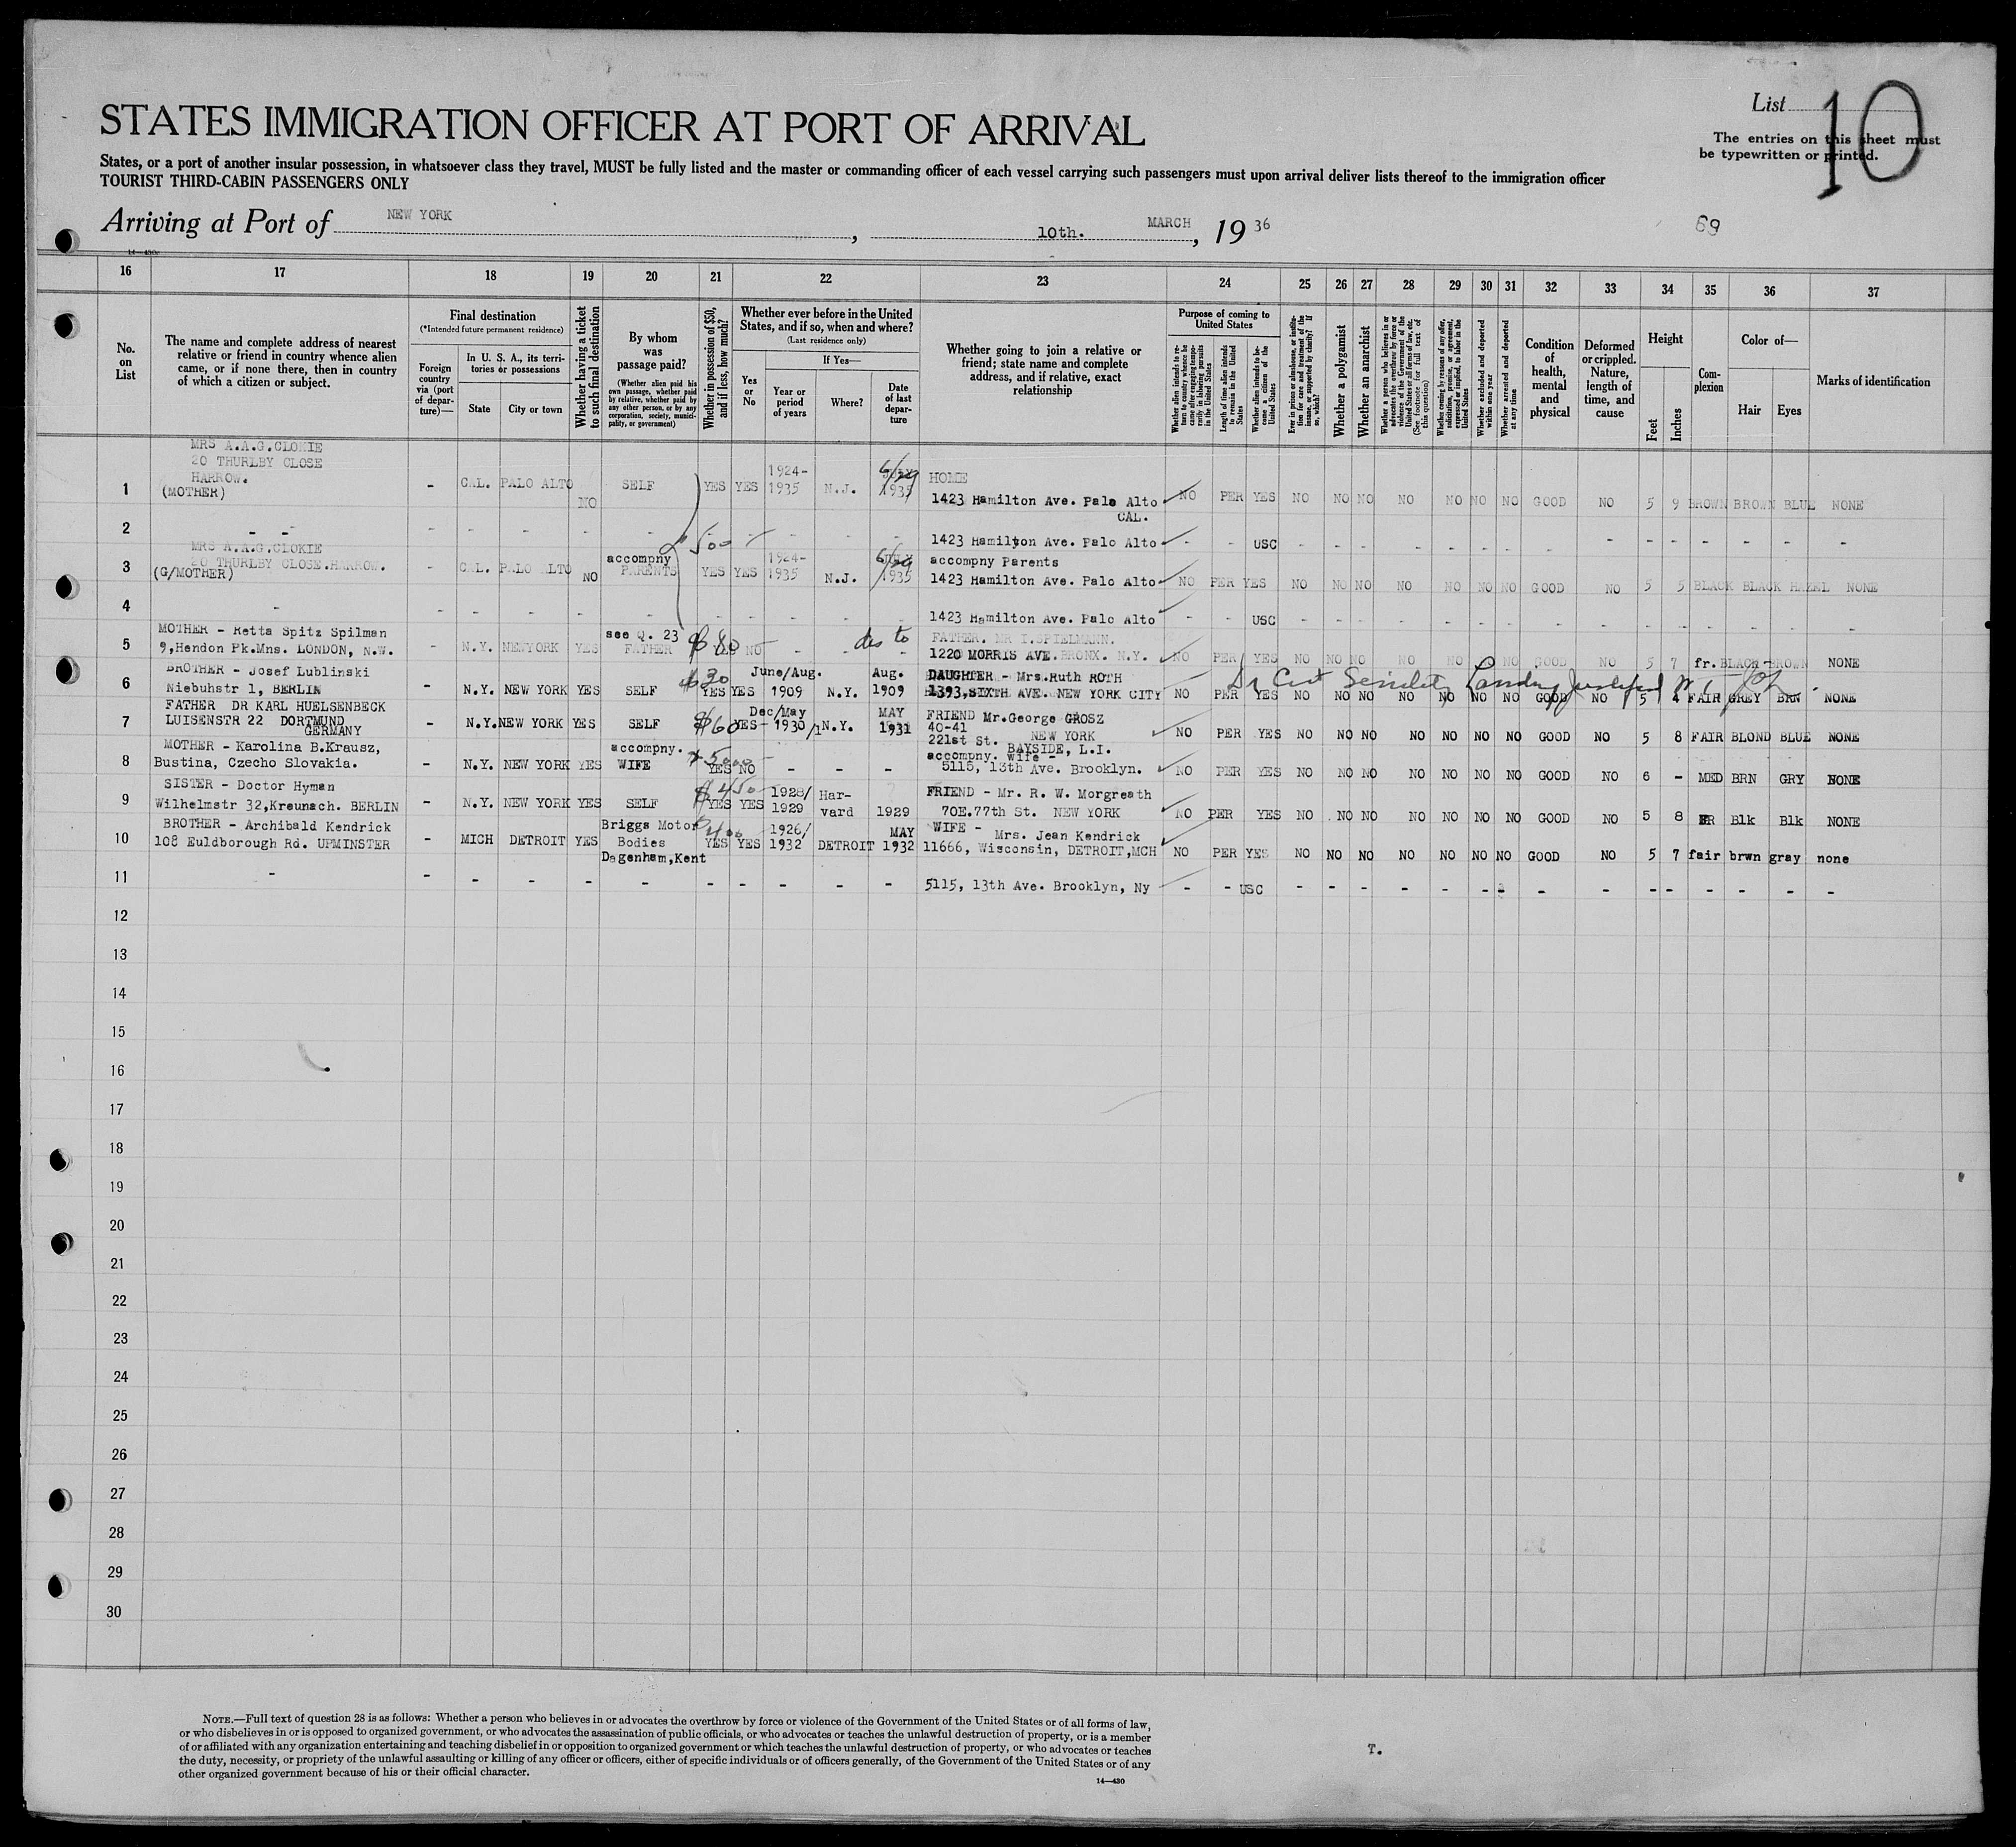 List 10
STATES IMMIGRATION OFFICER AT PORT OF ARRIVAL
The entries on this sheet must
be typewritten or printed.
States, or a port of another insular possession, in whatsoever class they travel, MUST be fully listed and the master or commanding officer of each vessel carrying such passengers must upon arrival deliver lists thereof to the immigration officer
TOURIST THIRD-CABIN PASSENGERS ONLY
Arriving at Port of NEW YORK, 10th. MARCH, 19 36
69
14—430
16 17 18 19 20 21 22 23 24 25 26 27 28 29 30 31 32 33 34 35 36 37
No. on List
The name and complete address of nearest relative or friend in country whence alien came, or if none there, then in country of which a citizen or subject.
Final destination
(*Intended future permanent residence)
Foreign country via (port of departure)—
In U. S. A., its territories or possessions
State
City or town
Whether having a ticket to such final destination
By whom was passage paid?
(Whether alien paid his own passage, whether paid by relative, whether paid by any other person, or by any corporation, society, municipality, or government)
Whether in possession of $50, and if less, how much?
Whether ever before in the United States, and if so, when and where?
(Last residence only)
Yes or No
If Yes—
Year or period of years
Where?
Date of last departure
Whether going to join a relative or friend; state name and complete address, and if relative, exact relationship
Purpose of coming to United States
Whether alien intends to return to country whence he came after engaging temporarily in laboring pursuits in the United States
Length of time alien intends to remain in the United States
Whether alien intends to become a citizen of the United States
Ever in prison or almshouse, or institution for care and treatment of the insane, or supported by charity? If so, which?
Whether a polygamist
Whether an anarchist
Whether a person who believes in or advocates the overthrow by force or violence of the Government of the United States or all forms of law, etc. (See footnote for full text of this question)
Whether coming by reasons of any offer, solicitation, promise, or agreement, expressed or implied, to labor in the United States
Whether excluded and deported within one year
Whether arrested and deported at any time
Condition of health, mental and physical
Deformed or crippled. Nature, length of time, and cause
Height
Feet
Inches
Complexion
Color of—
Hair
Eyes
Marks of identification
1 MRS A.A.G.CLOKIE
20 THURLBY CLOSE
HARROW.
(MOTHER) - CAL. PALO ALTO NO SELF YES YES 1924-1935 N.J. 6/29 1935 HOME
1423 Hamilton Ave. Palo Alto CAL. NO PER YES NO NO NO NO NO NO NO GOOD NO 5 9 BROWN BROWN BLUE NONE
2 - - - - - - - $500 - - - - 1423 Hamilton Ave. Palo Alto - - USC - - - - - - - - - - - - - - -
3 MRS A.A.G.CLOKIE
20 THURLBY CLOSE.HARROW.
(G/MOTHER) - CAL. PALO ALTO NO accompny PARENTS YES YES 1924-1935 N.J. 6/29 1935 accompny Parents
1423 Hamilton Ave. Palo Alto NO PER YES NO NO NO NO NO NO NO GOOD NO 5 5 BLACK BLACK HAZEL NONE
4 - - - - - - - - - - - 1423 Hamilton Ave. Palo Alto - - USC - - - - - - - - - - - - - - -
5 MOTHER - Retta Spitz Spilman
9,Hendon Pk.Mns. LONDON, N.W. - N.Y. NEWYORK YES see Q. 23 FATHER $80 YES NO - - - des to FATHER. MR I.SPIELMANN.
1220 MORRIS AVE.BRONX. N.Y. NO PER YES NO NO NO NO NO NO GOOD NO 5 7 fr. BLACK-BROWN NONE
6 BROTHER - Josef Lublinski
Niebuhstr 1, BERLIN - N.Y. NEW YORK YES SELF $30 YES YES June/Aug. 1909 N.Y. Aug. 1909 DAUGHTER - Mrs.Ruth ROTH
1393,SIXTH AVE. NEW YORK CITY NO PER YES NO NO NO NO NO NO NO GOOD NO 5 4 FAIR GREY BRN NONE
Dr Cert Senility Landing justified
7 FATHER DR KARL HUELSENBECK
LUISENSTR 22 DORTMUND
GERMANY - N.Y. NEW YORK YES SELF $60 YES Dec/May 1930/1 N.Y. MAY 1931 FRIEND Mr.George GROSZ
40-41 221st St. NEW YORK
BAYSIDE, L.I. NO PER YES NO NO NO NO NO NO NO GOOD NO 5 8 FAIR BLOND BLUE NONE
8 MOTHER - Karolina B.Krausz,
Bustina, Czecho Slovakia. - N.Y. NEW YORK YES accompny. WIFE YES NO - - - accompny. wife -
5115, 13th Ave. Brooklyn. NO PER YES NO NO NO NO NO NO NO GOOD NO 6 - MED BRN GRY NONE
9 SISTER - Doctor Hyman
Wilhelmstr 32,Kreunach. BERLIN - N.Y. NEW YORK YES SELF $450 YES YES 1928/1929 Harvard 1929 FRIEND - Mr. R. W. Morgreath
70E.77th St. NEW YORK NO PER YES NO NO NO NO NO NO NO GOOD NO 5 8 BR Blk Blk NONE
10 BROTHER - Archibald Kendrick
108 Euldborough Rd. UPMINSTER - MICH DETROIT YES Briggs Motor Bodies Dagenham,Kent YES YES 1926/1932 DETROIT MAY 1932 WIFE - Mrs. Jean Kendrick
11666, Wisconsin, DETROIT,MCH NO PER YES NO NO NO NO NO NO NO GOOD NO 5 7 fair brwn gray none
11 - - - - - - - - - - - 5115, 13th Ave. Brooklyn, Ny - - USC - - - - - - - - - - - - - - -
12
13
14
15
16
17
18
19
20
21
22
23
24
25
26
27
28
29
30
NOTE.—Full text of question 28 is as follows: Whether a person who believes in or advocates the overthrow by force or violence of the Government of the United States or of all forms of law,
or who disbelieves in or is opposed to organized government, or who advocates the assassination of public officials, or who advocates or teaches the unlawful destruction of property, or is a member
of or affiliated with any organization entertaining and teaching disbelief in or opposition to organized government or which teaches the unlawful destruction of property, or who advocates or teaches
the duty, necessity, or propriety of the unlawful assaulting or killing of any officer or officers, either of specific individuals or of officers generally, of the Government of the United States or of any
other organized government because of his or their official character.
14—430
T.